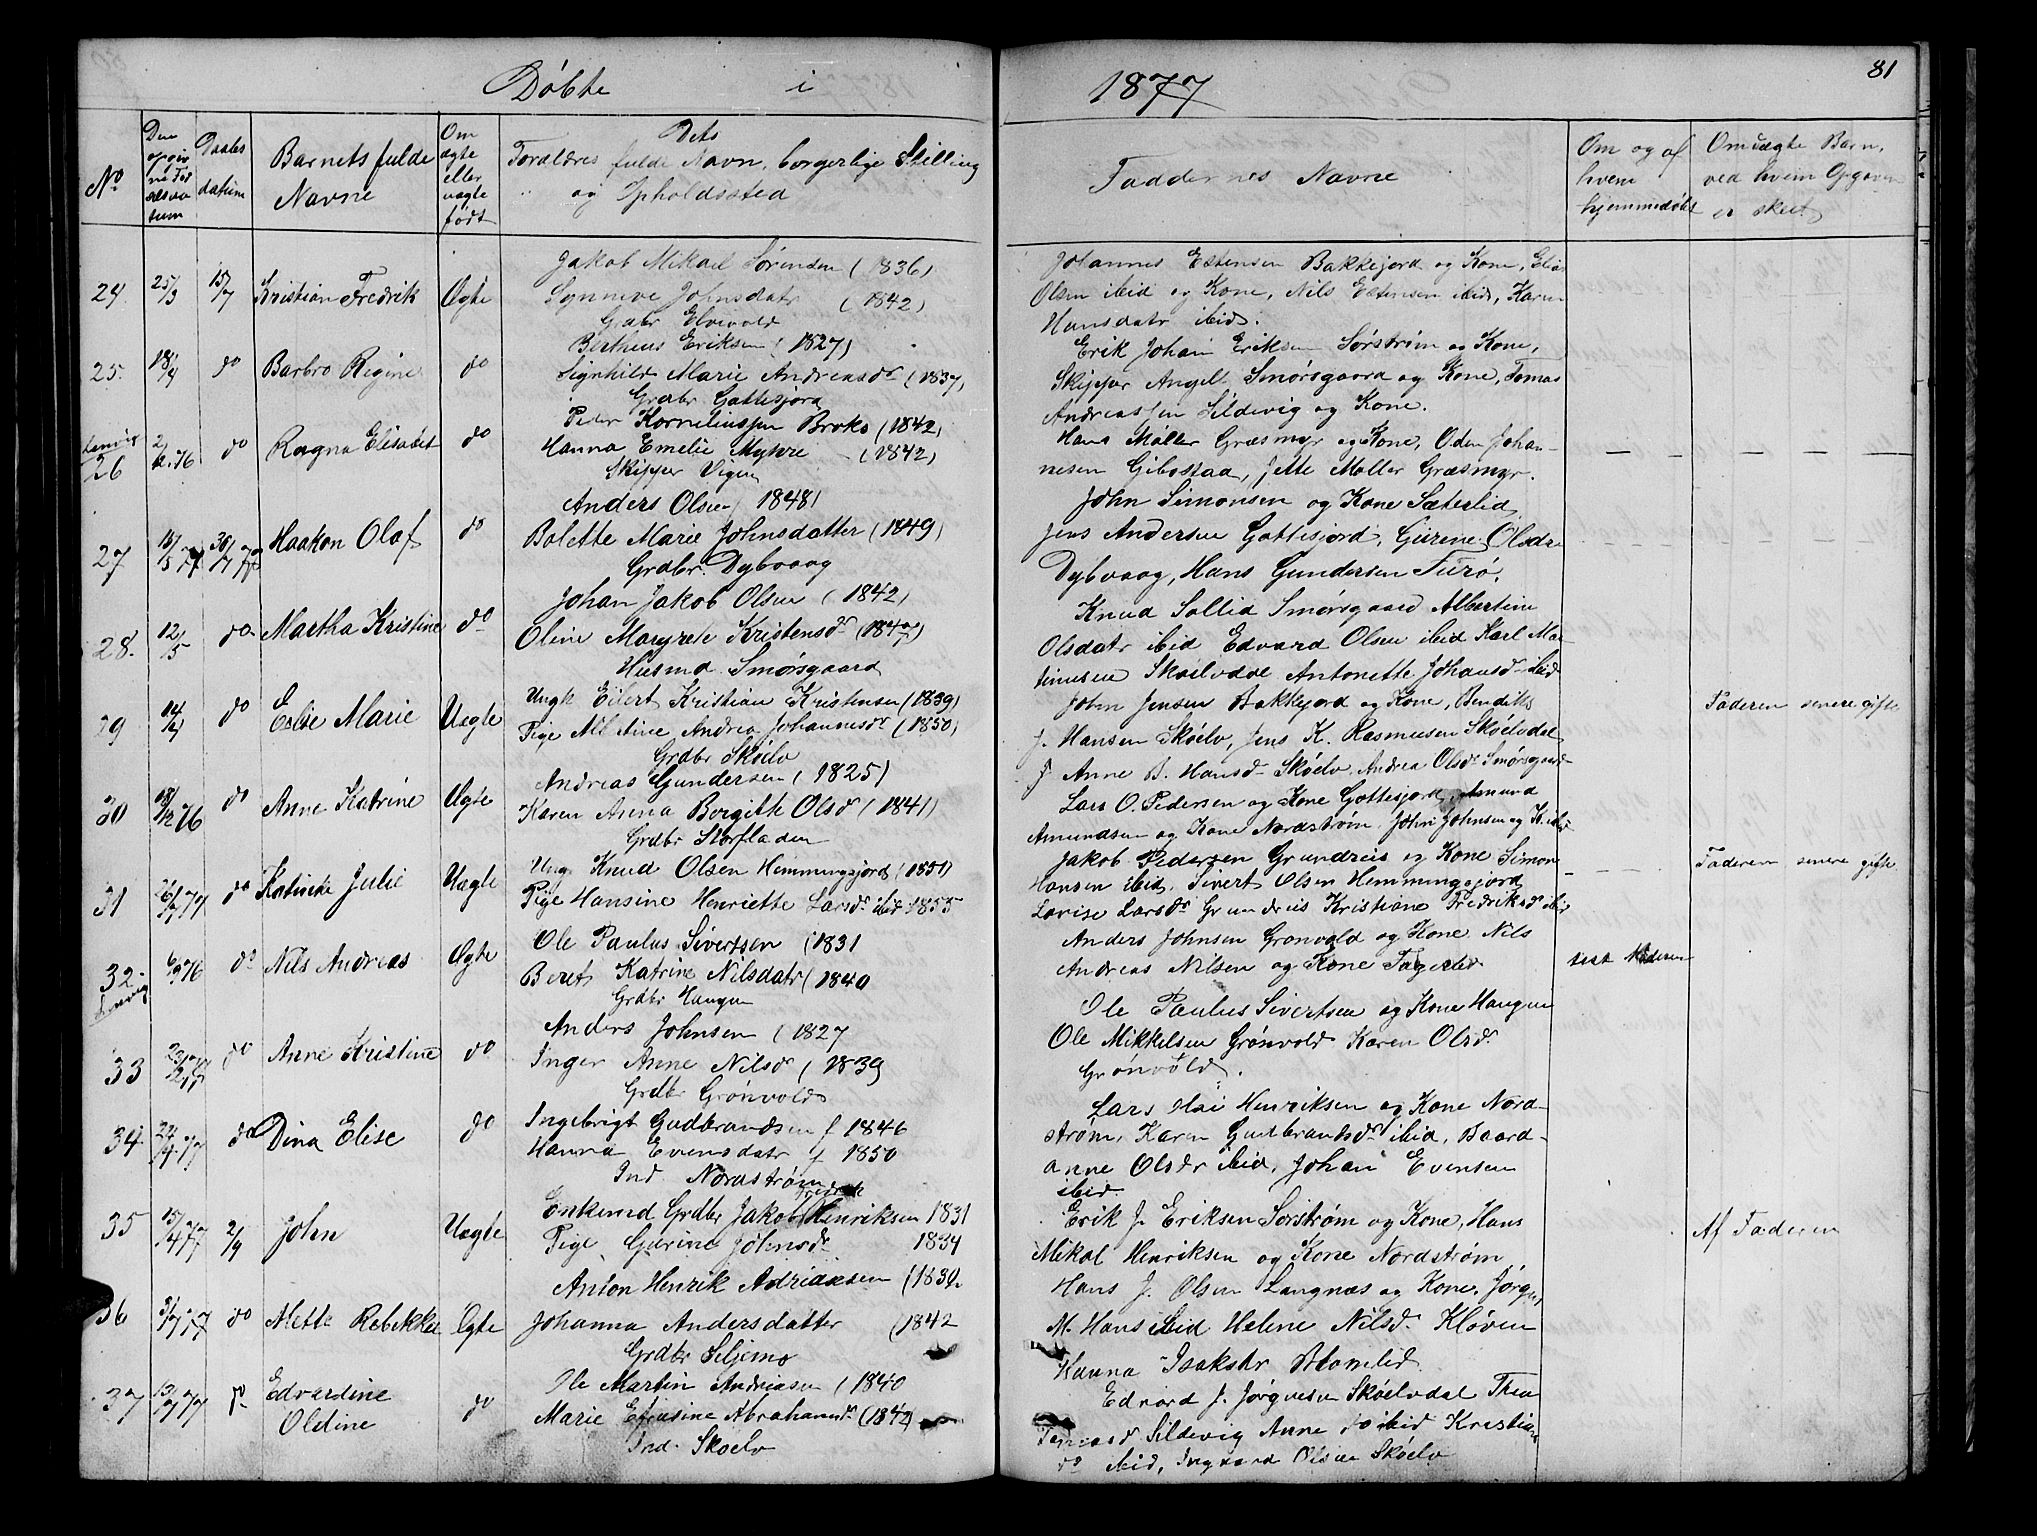 81
Døbte i 1877
No
Den opgivne Fødselsdatum
Daabsdatum
Barnets fulde Navne
Om ægte eller uægte født
Dets Forældres fulde Navn, borgerlige Stilling og Opholdssted
Faddernes Navne
Om og af hvem hjemmedøbt
Om uægte Barn, ved hvem Opgaven er skeet
24 25/3 15/7 Kristian Fredrik Ægte
Jakob Mikael Sørensen (1836)
Synneve Johnsdatr (1842)
Grdbr Elvevold
Johannes Estensen Bakkejord og Kone, Elias
Olsen ibid og Kone, Nils Estensen ibid, Karen
Hansdatr ibid.
25. 18/4 do Barbro Regine do
Bertheus Eriksen (1827)
Signhild Marie Andreasdr (1837)
Grdbr Gottesjord
Erik Johan Eriksen Sørstrøm og Kone,
Skipper Angell Smørsgaard og Kone, Tomas
Andreassen Sildevig og Kone.
26 do Ragna Elisabet do
Peder Korneliussen Broks (1842)
Hanna Emelie Myhre (1842)
Skipper Vigen
Hans Møller Græsmyr og Kone, Oden Johan-
nesen Gibostad, Jette Møller Græsmyr.
27 Haakon Olaf do
Anders Olsen (1848)
Bolette Marie Johnsdatter (1849)
Grdbr. Dybvaag
John Simonsen og Kone Sæterlid
Jens Andersen Gottesjord, Gurine Olsdr
Dybvaag, Hans Gundersen Turø.
28. 12/5 do Martha Kristine do
Johan Jakob Olsen (1842)
Oline Margrete Kristensdr
Husmd Smørsgaard
Knud Sollid Smørsgaard Albertine
Olsdatr ibid Edvard Olsen ibid Karl Mar-
tinusen Skøelvdal Antonette Johansd ibid
29 do Else Marie Uægte
Ungk Eilert Kristian Kristensen (1839)
Pige Albertine Andrea Johannesdr (1850)
Grdbr Skøelv
John Jensen Bakkejord og Kone, Bendikte
J. Hansen Skøelv, Jens K. Rasmusen Skøelvdal
Anne B. Hansd Skøelv, Andrea Olsdr Smørsgaard
Faderen senere gift
30 18/12 76 do Anne Katrine Ægte
Andreas Gundersen (1825)
Karen Anna Bergitte Olsd (1841)
Grdbr Storfladen
Lars O. Pedersen og Kone Gottesjord, Amund
Amundsen og Kone Nordstrøm, John Johnsen og K. ibid
31 do Katinka Julie Uægte
Ung. Knud Olsen Hemmingsjord (1851)
Pige Hansine Henriette Larsdr ibid 1855
Jakob Pedersen Grundreis og Kone Simon
Hansen ibid, Sivert Olsen Hemmingsjord
Lovise Larsdr Grundreis Kristiane Fredriksd ibid
Faderen senere gift
32. 6/9 76 do Nils Andreas Ægte
Ole Paulus Sivertsen (1831
Beret Katrine Nilsdatr (1840
Grdbr Haugen
Anders Johnsen Grønvold og Kone Nils
Andreas Nilsen og Kone Fagerlid
33 do Anne Kristine do
Anders Johnsen (1827
Inger Anne Nilsdr (1839
Grdbr Grønvold
Ole Paulus Sivertsen og Kone Haugen
Ole Mikkelsen Grønvold Karen Olsdr
Grønvold.
34. do Dina Elise do
Ingebrigt Gudbrandsen f 1846
Hanna Evensdatr f 1850
Ind. Nordstrøm
Lars Hai Henriksen og Kone Nord-
strøm, Karen Gudbrandsdr ibid, Baard-
anne Olsdr ibid, Johan Evensen
ibid.
35 15/4 77 2/9 John Uægte
Enkemd Grdbr Jakob Fredrik Henriksen 1831
Pige Gurine Johnsdr 1834
Erik J. Eriksen Sørstrøm og Kone, Hans
Mikal Henriksen og Kone Nordstrøm
Af Faderen
36 31/7 77 do Mette Rebekka Ægte
Anton Henrik Adriansen (1830
Johanna Andersdatter (1842
Grdbr Siljemo
Hans J. Olsen Langnæs og Kone, Jørgen
M. Hans ibid Helene Nilsd. Kløven
Hanna Isaksdr Blomlid
37 Edvardine Oldine do
Ole Martin Andreasen (1840
Marie Efrosine Abrahamsdr (1842)
Ind. Skøelv
Edvard J. Jørgensen Skøelvdal Thea
Tomasd Sildevig Anne do ibid Kristian
do ibid, Ingvard Olsen Skøelv